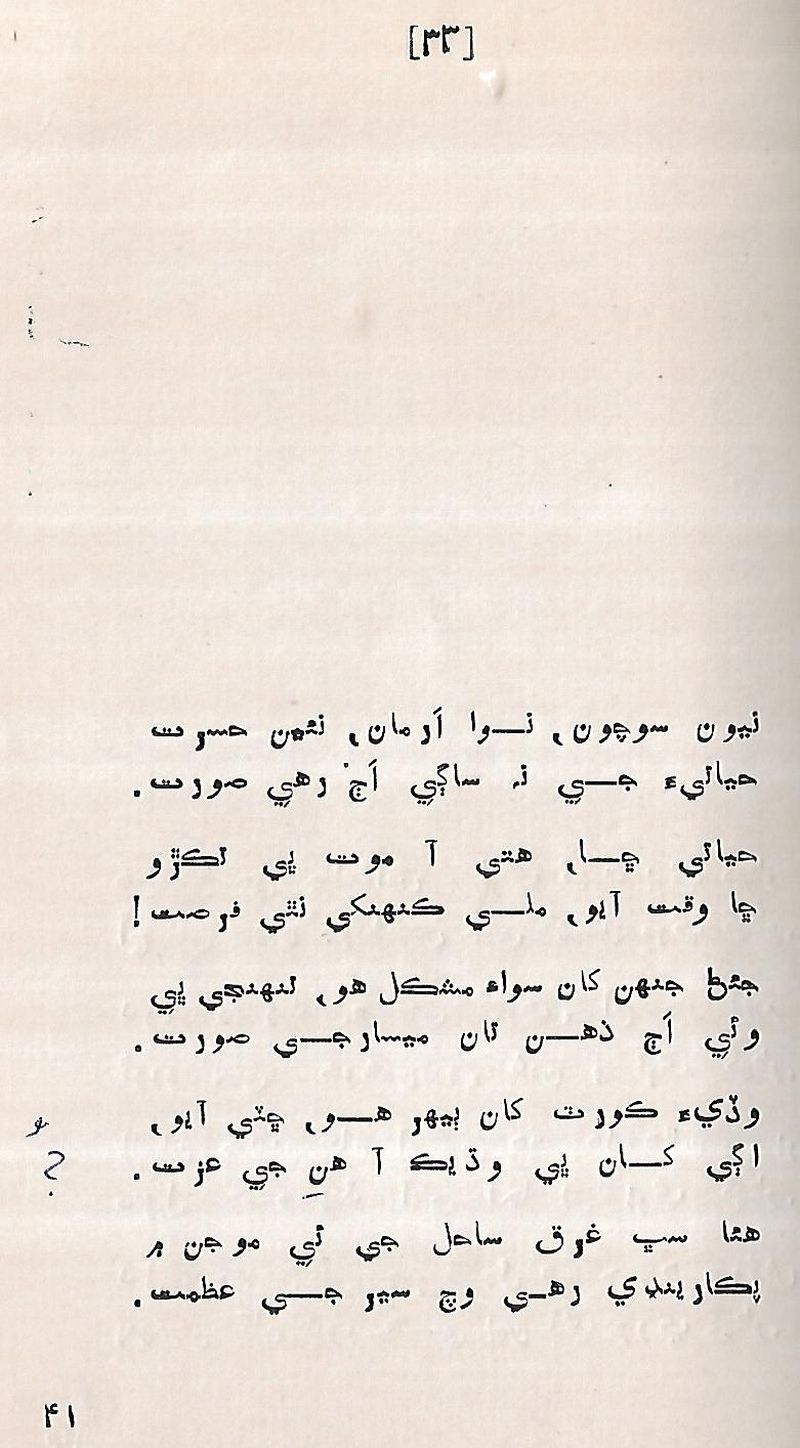 [۳۳]
نيون سوچون، نوا اَرمان، نئين حسرت
حياتيءَ جي نہ ساڳي اَڄ رهي صورت.
حياتي ڇا، هتي آ موت پي تڪڙو
ڇا وقت آيو، ملي ڪنهنکي نٿي فرصت!
جئڻ جنهن کان سواءِ مشڪل هو، تنهنجي پي
وئي اَڄ ذهن تان ميسارجي صورت.
وڏيءَ ڪورٽ کان بيهر هو، ڇٽي آيو،
اڳي کان پي وڌيڪ آ هنِ جي عزت.
؟
هئا سڀ غرق ساحل جي ئي موجن ۾
پڪاريندي رهي وچ سير جي عظمت.
۴۱